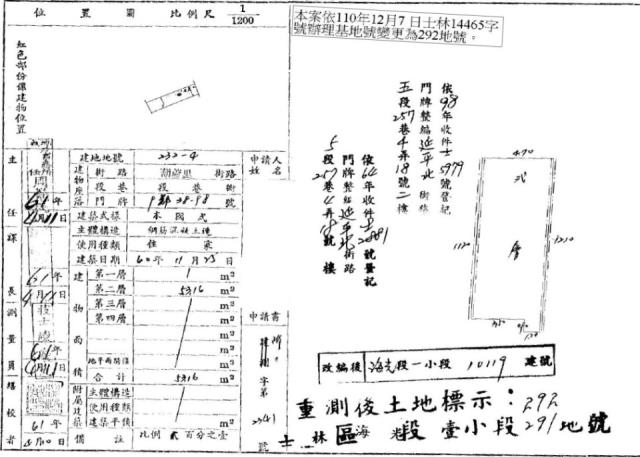 位置圖 比例尺 1/1200
本案依110年12月7日士林14465字
號辦理基地號變更為292地號。
紅色部份係建物位置
建地地號 232-4
申請人姓名
建物座落
街路 胡鮮里 街路
段巷 段巷 街
門牌 9鄰38-98 號
建築式樣 本國式
主體構造 鋼筋混凝土造
使用種類 住家
建築日期 60年11月23日
建物面積
第一層 m²
第二層 5316 m²
第三層 m²
第四層 m²
m²
地平面騎樓 m²
合計 5316 m²
附屬建築
主體構造
使用種類
建築平積 m²
備註 比例 貳百分之壹
主任
61年
4月11日
課長
61年
4月11日
測量員
61年
4月11日
校者
61年
4月10日
申請書
字第
2241
號
依98年收件士5979號登記
門牌整編延平北街路
五段257巷4弄18號二樓
依64年收件士號登記
門牌整編延平北街路
5段257巷4弄18號 樓
470
貳層
1210
改編後 海光段一小段 10119 建號
重測後土地標示：292
士林區海光段壹小段291地號